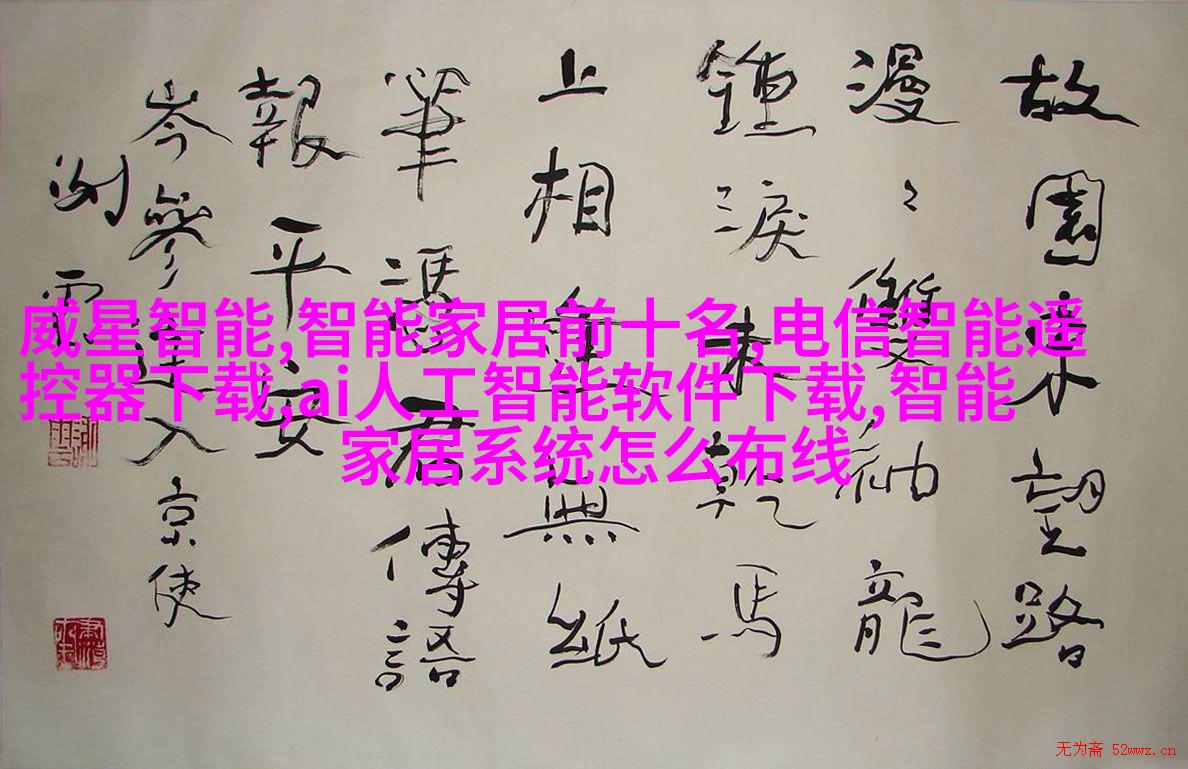 故園東望路
漫〻雙袖龍
鍾淚未乾馬
上相逢無紙
筆憑君傳語
報平安
岑參逢入京使
威星智能,智能家居前十名,电信智能遥
控器下载,ai人工智能软件下载,智能
家居系统怎么布线
无为斋 52wwz.cn